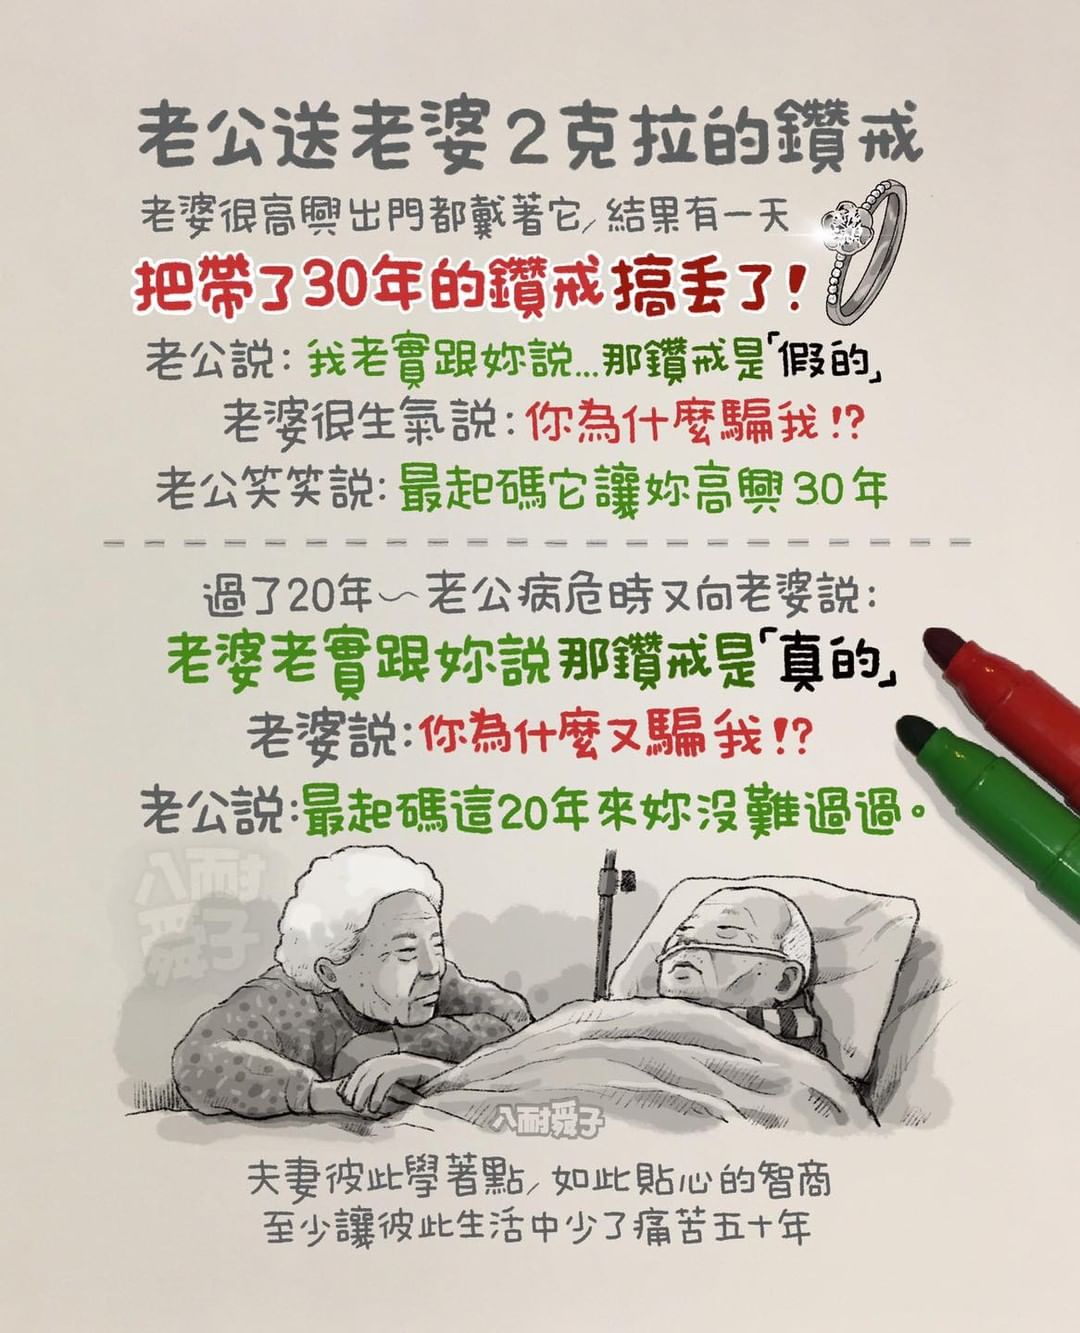 老公送老婆2克拉的鑽戒
老婆很高興出門都戴著它,結果有一天
把帶了30年的鑽戒搞丟了!
老公說:我老實跟妳說...那鑽戒是「假的」
老婆很生氣說:你為什麼騙我!?
老公笑笑說:最起碼它讓妳高興30年
過了20年~老公病危時又向老婆說:
老婆老實跟妳說那鑽戒是「真的」
老婆說:你為什麼又騙我!?
老公說:最起碼這20年來妳沒難過過。
八耐舜子
八耐舜子
夫妻彼此學著點,如此貼心的智商
至少讓彼此生活中少了痛苦五十年